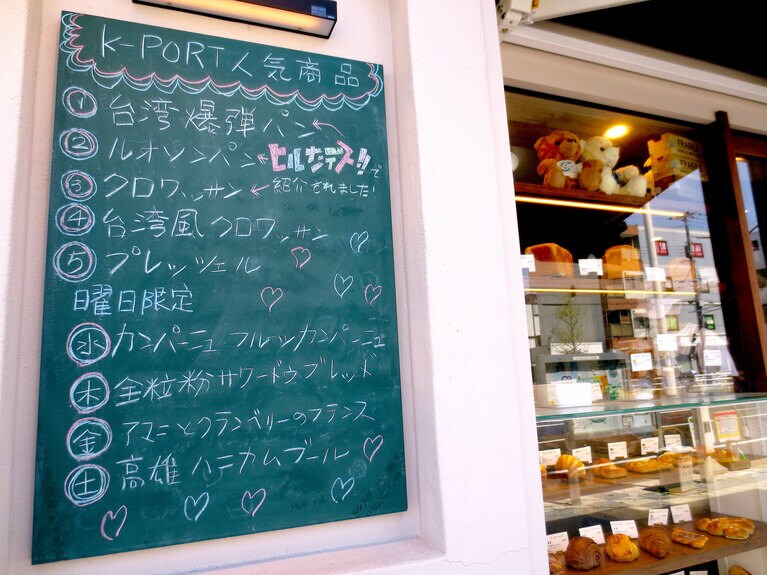 K-PORT人気商品
① 台湾爆弾パン
② ルオソンパン ← ヒルナンデス!!で
③ クロワッサン ← 紹介されました!
④ 台湾風クロワッサン
⑤ プレッツェル
曜日限定
水 カンパーニュ フルーツカンパーニュ
木 全粒粉サワードウブレッド
金 アマニとクランベリーのフランス
土 高雄ハニカムブール
FRAGILE